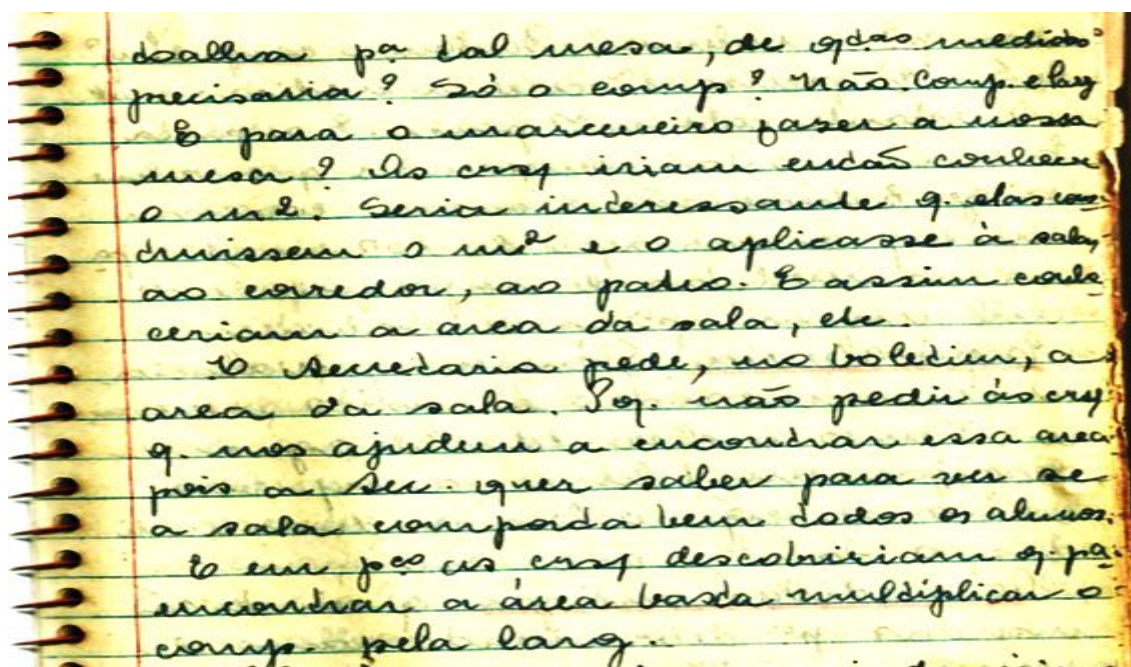 toalha pª tal mesa, de qdas medidas
precisaria? Só o comp? Não. Comp. e larg
E para o marceneiro fazer a nossa
mesa? As crsç iriam então conhecer
o m2. Seria interessante q. elas cons-
truissem o m² e o aplicasse à sala,
ao corredor, ao patio. E assim conhe-
ceriam a area da sala, etc.
A Secretaria pede, no boletim, a
area da sala. Pq. não pedir às crsç
q. nos ajudem a encontrar essa area
pois a Sec. quer saber para ver se
a sala comporta bem todos os alunos.
E em pco as crsç descobririam q. pª
encontrar a área basta multiplicar o
comp. pela larg.